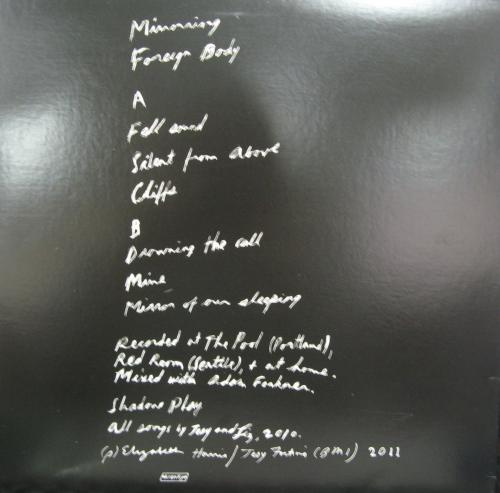 Mirrorring
Foreign Body
A
Fell sound
Silent from above
Cliffs
B
Drowning the call
Mine
Mirror of our sleeping
Recorded at The Pool (Portland),
Red Room (Seattle), + at home.
Mixed with Adam Forkner.
Shadow Play
All songs by Jesy and Liz, 2010.
(p) Elizabeth Harris / Jesy Fortino (BMI) 2011